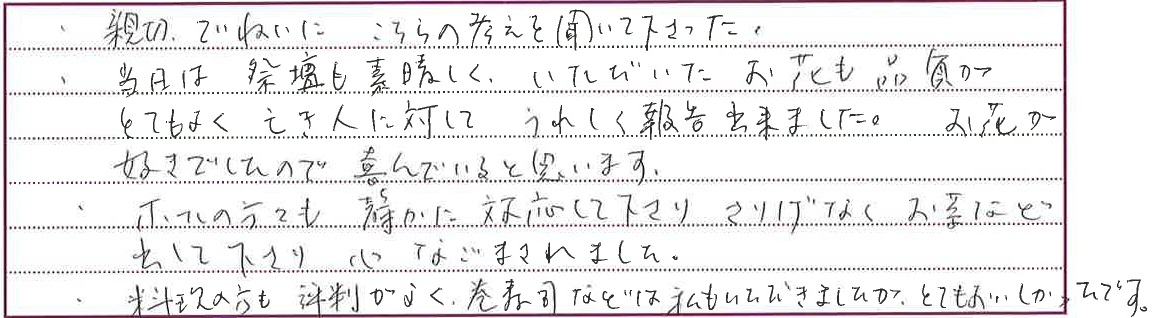 ・ 親切、ていねいに こちらの考えを聞いて下さった。
・ 当日は 祭壇も素晴しく、いただいた お花も品質が
とてもよく 亡き人に対して うれしく報告出来ました。 お花が
好きでしたので 喜んでいると思います。
・ ホールの方々も 静かに 対応して下さり さりげなく お茶など
出して下さり 心 なごまされました。
・ 料理の方も 評判がよく、巻寿司などは私もいただきましたが、とてもおいしかったです。